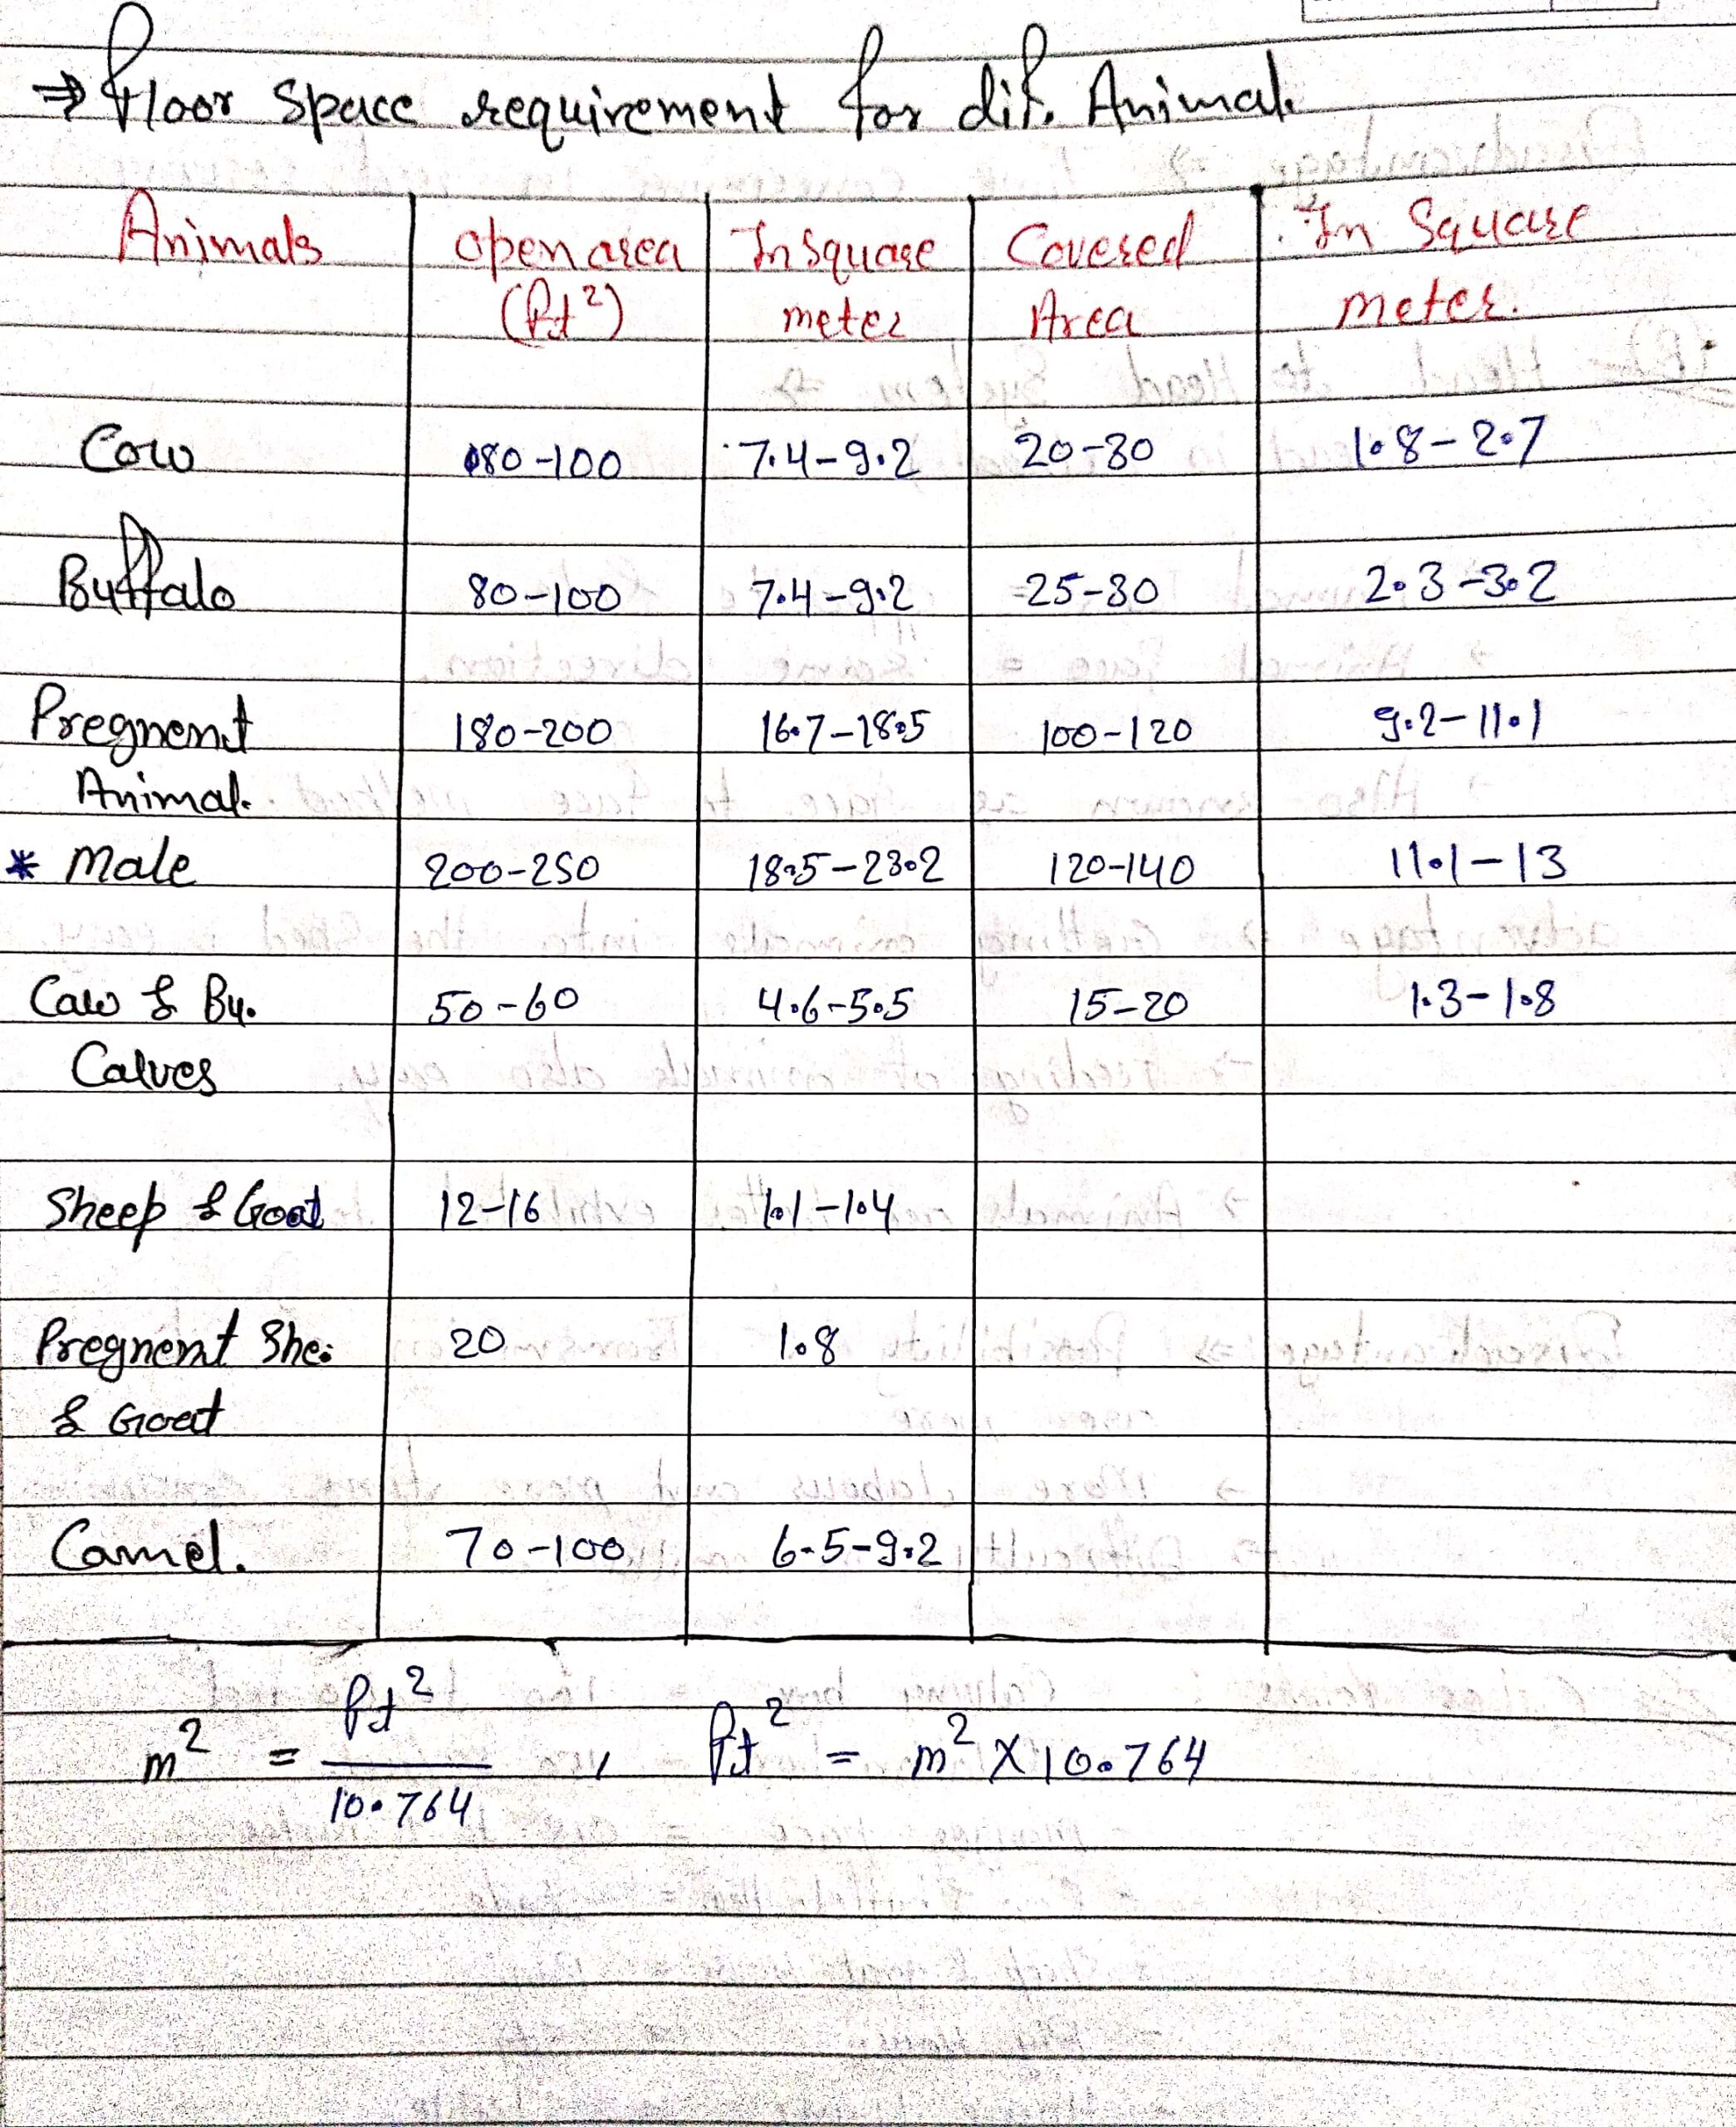 ⇒ Floor Space requirement for dif. Animal.
Animals Open area In Square Covered In Square
(ft²) meter Area meter.
Cow 80-100 7.4-9.2 20-30 1.8-2.7
Buffalo 80-100 7.4-9.2 25-30 2.3-3.2
Pregnent 180-200 16.7-18.5 100-120 9.2-11.1
Animal.
* Male 200-250 18.5-23.2 120-140 11.1-13
Caw & Bu. 50-60 4.6-5.5 15-20 1.3-1.8
Calves
Sheep & Goat 12-16 1.1-1.4
Pregnent She. 20 1.8
& Goat
Camel. 70-100 6.5-9.2
m² = ft² / 10.764 , ft² = m² X 10.764